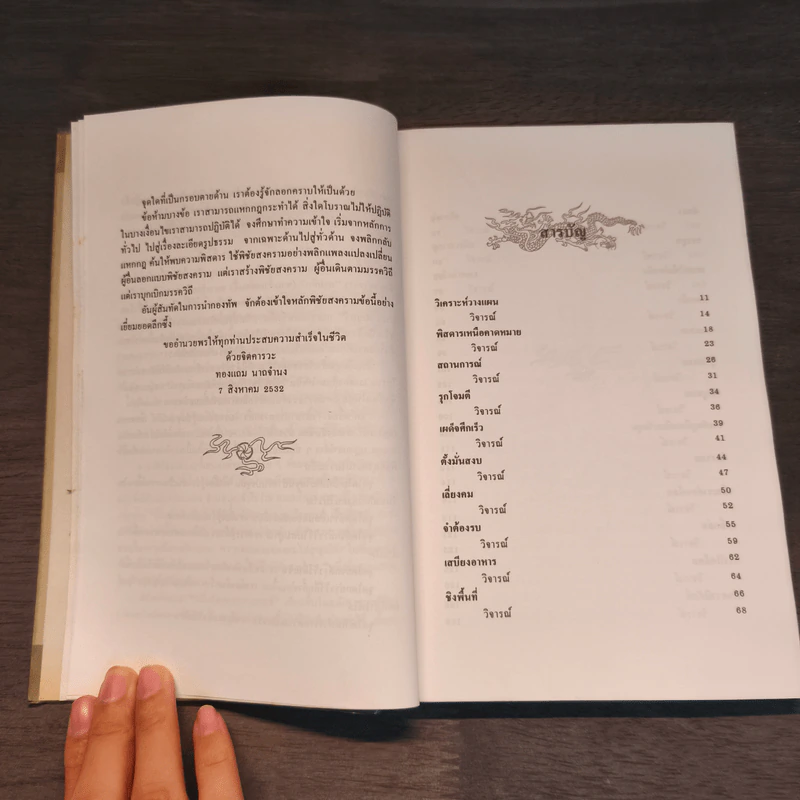 จุดใดที่เป็นกรอบตายด้าน เราต้องรู้จักลอกคราบให้เป็นด้วย
ข้อห้ามบางข้อ เราสามารถแหกกฎกระทำได้ สิ่งใดโบราณไม่ให้ปฏิบัติ
ในบางเงื่อนไขเราสามารถปฏิบัติได้ จงศึกษาทำความเข้าใจ เริ่มจากหลักการ
ทั่วไป ไปสู่เรื่องละเอียดรูปธรรม จากเฉพาะด้านไปสู่ทั่วด้าน จงพลิกกลับ
แหกกฎ ค้นให้พบความพิสดาร ใช้พิชัยสงครามอย่างพลิกแพลงแปลงเปลี่ยน
ผู้อื่นลอกแบบพิชัยสงคราม แต่เราสร้างพิชัยสงคราม ผู้อื่นเดินตามมรรควิถี
แต่เราบุกเบิกมรรควิถี
อันผู้สันทัดในการนำกองทัพ จักต้องเข้าใจหลักพิชัยสงครามข้อนี้อย่าง
เยี่ยมยอดลึกซึ้ง
ขออำนวยพรให้ทุกท่านประสบความสำเร็จในชีวิต
ด้วยจิตคารวะ
ทองแถม นาถจำนง
7 สิงหาคม 2532
สารบัญ
วิเคราะห์วางแผน 11
วิจารณ์ 14
พิสดารเหนือคาดหมาย 18
วิจารณ์ 23
สถานการณ์ 26
วิจารณ์ 31
รุกโจมตี 34
วิจารณ์ 36
เผด็จศึกเร็ว 39
วิจารณ์ 41
ตั้งมั่นสงบ 44
วิจารณ์ 47
เลี่ยงคม 50
วิจารณ์ 52
จำต้องรบ 55
วิจารณ์ 59
เสบียงอาหาร 62
วิจารณ์ 64
ชิงพื้นที่ 66
วิจารณ์ 68